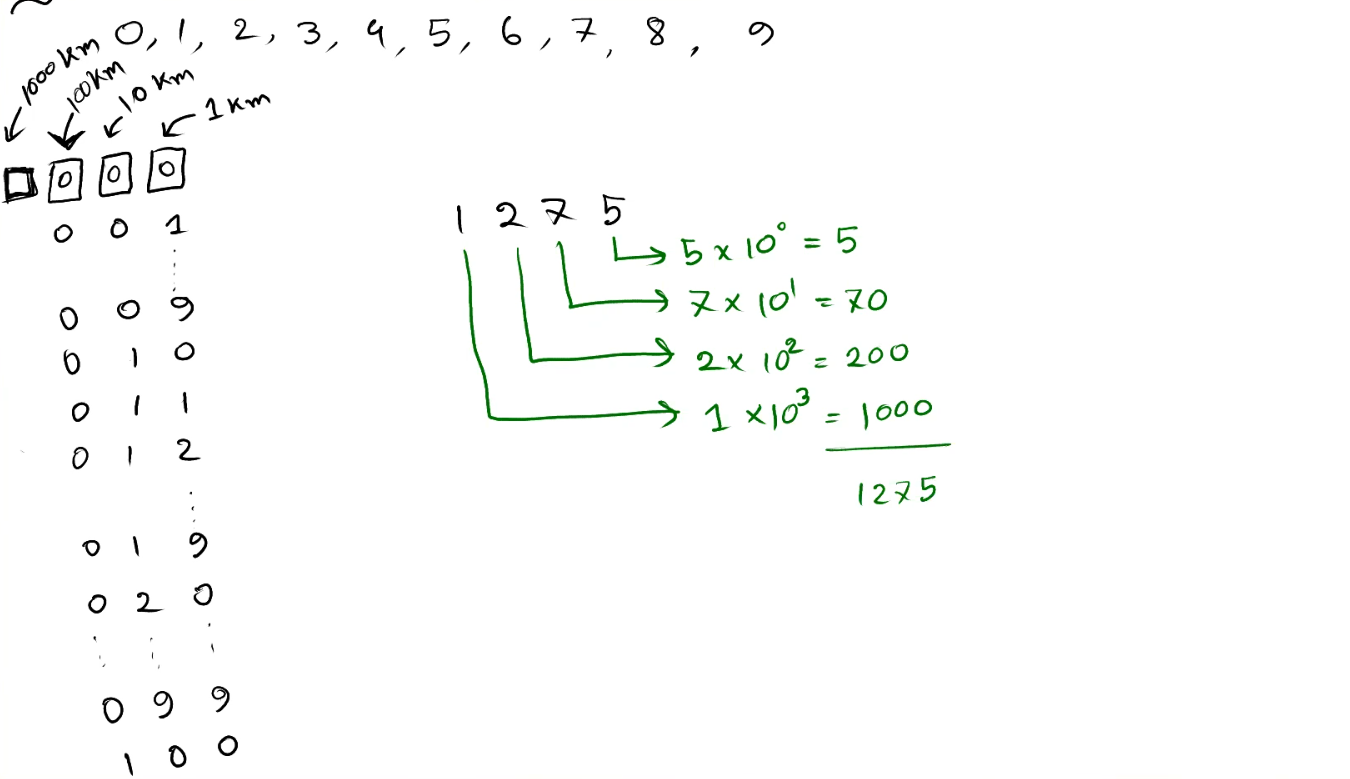 0, 1, 2, 3, 4, 5, 6, 7, 8, 9
1000 km 100 km 10 km 1 km
0 0 0
0 0 1
0 0 9
0 1 0
0 1 1
0 1 2
0 1 9
0 2 0
0 9 9
1 0 0
1 2 7 5
5 × 10⁰ = 5
7 × 10¹ = 70
2 × 10² = 200
1 × 10³ = 1000
1275